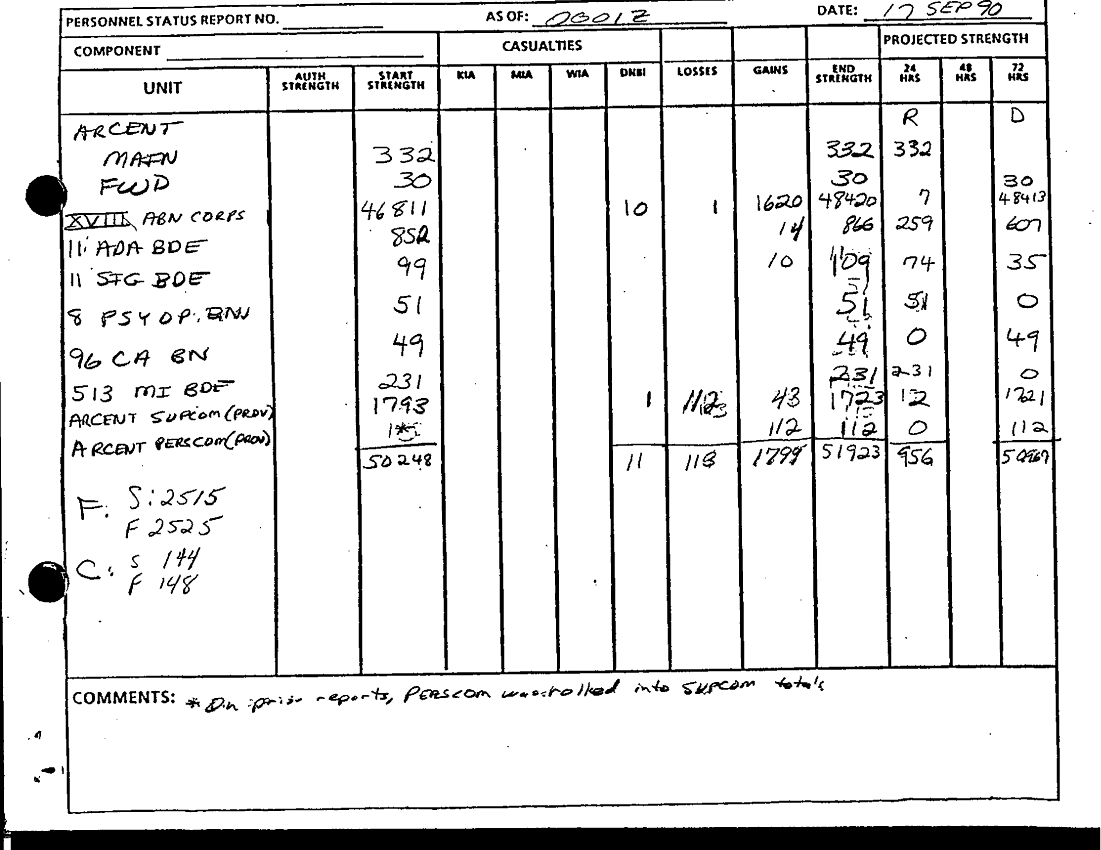 PERSONNEL STATUS REPORT NO. AS OF: 0601Z DATE: 17 SEP 90
COMPONENT CASUALTIES PROJECTED STRENGTH
UNIT AUTH STRENGTH START STRENGTH KIA MIA WIA DNBI LOSSES GAINS END STRENGTH 24 HRS 48 HRS 72 HRS
ARCENT R D
MAIN 332 332 332
FWD 30 30 30
XVIII ABN CORPS 46811 10 1 1620 48420 7 48413
11 ADA BDE 852 14 866 259 607
11 SIG BDE 99 10 109 74 35
8 PSYOP. BN 51 51 51 0
96 CA BN 49 49 0 49
513 MI BDE 231 231 231 0
ARCENT SUPCOM (PROV) 1793 1 112 43 1723 12 1721
ARCENT PERSCOM (PROV) * 112 112 0 112
50248 11 113 1799 51923 956
F: S: 2515
F 2525
C: S 144
F 148
COMMENTS: * On prior reports, PERSCOM was rolled into SUPCOM totals